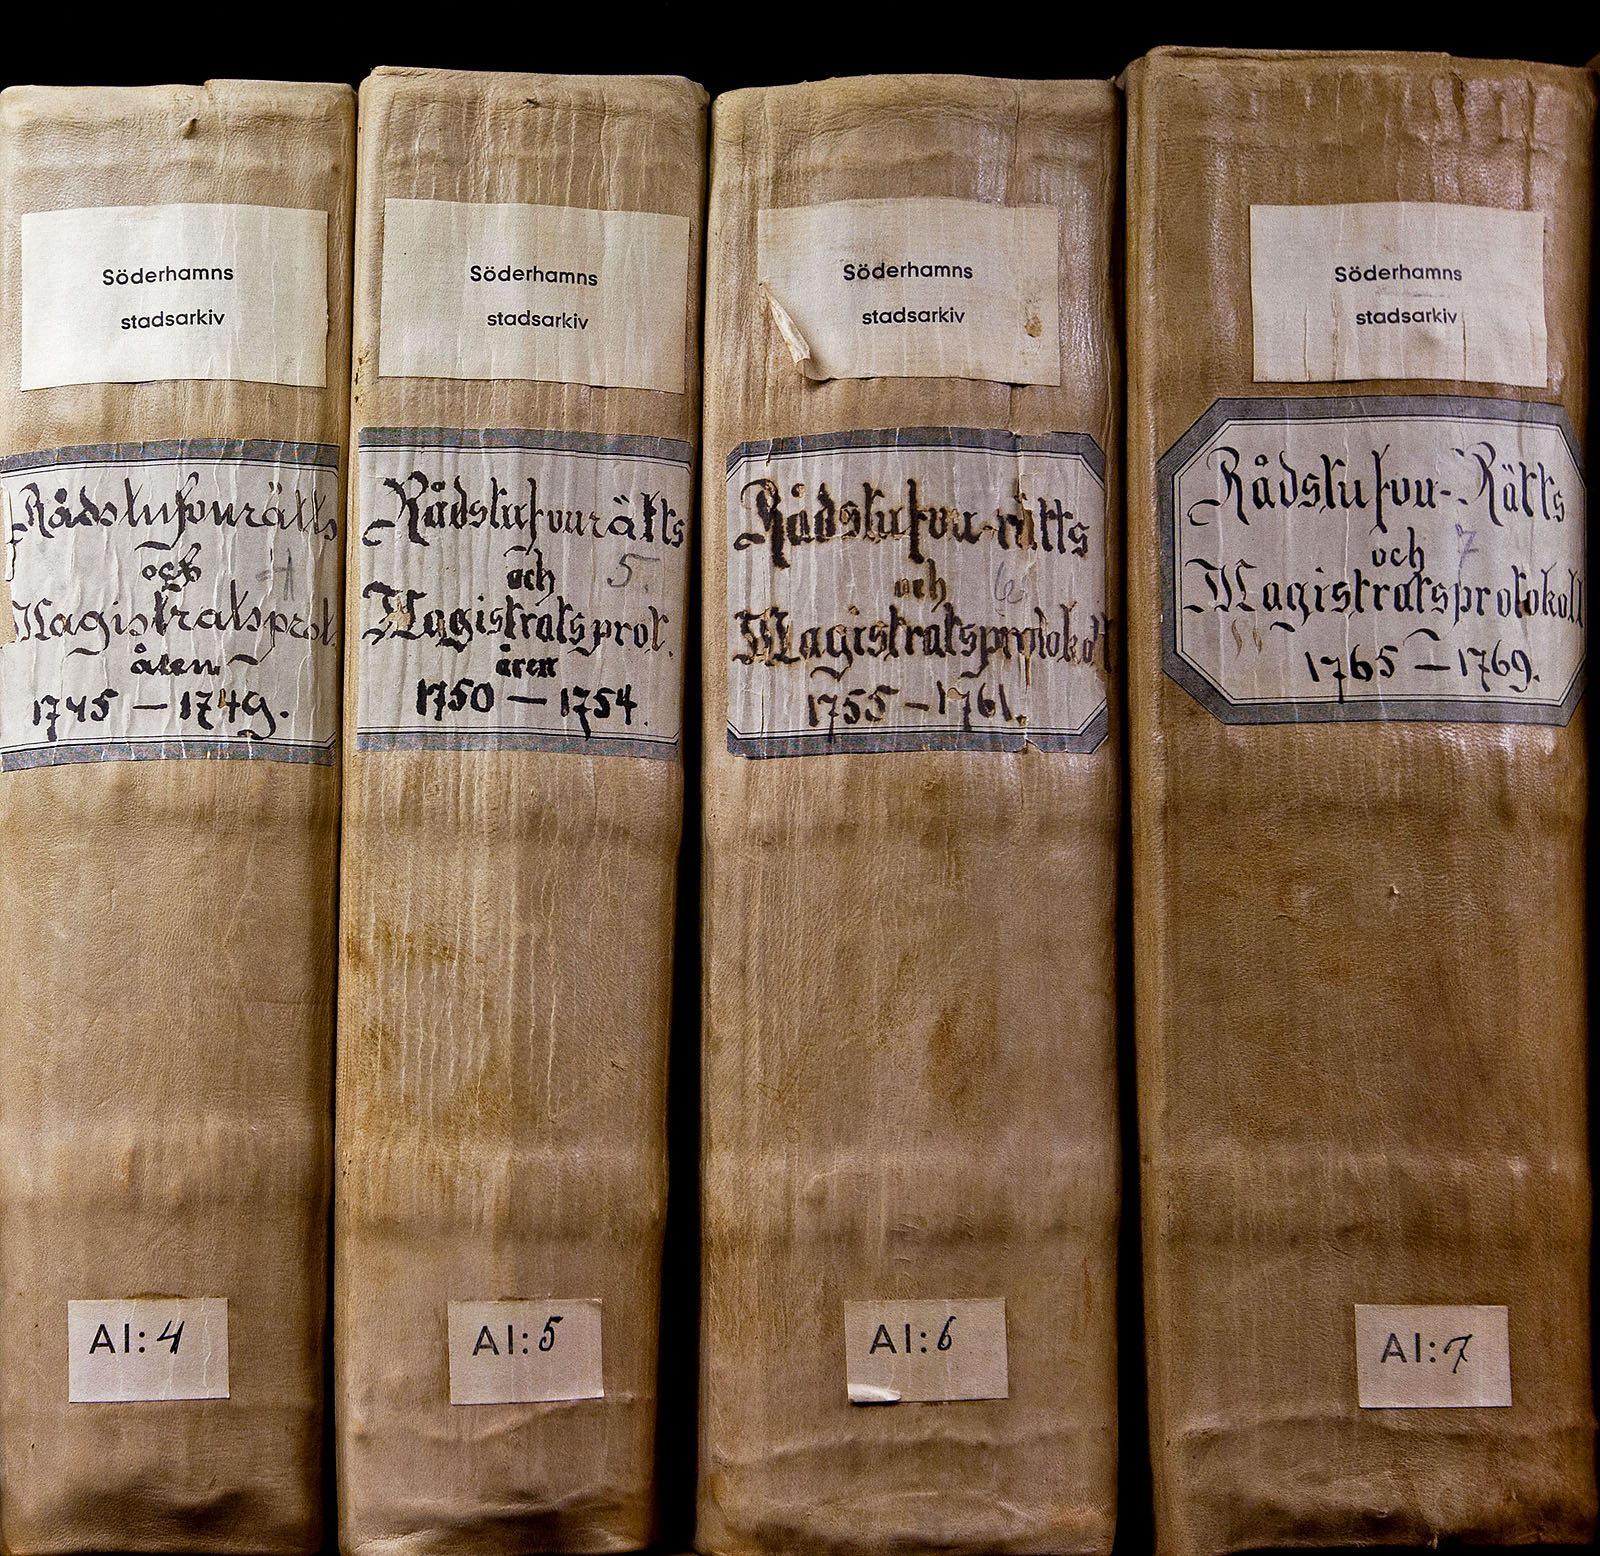 Söderhamns
stadsarkiv
Rådstufvurätts
och 4
Magistratsprot.
åren
1745 — 1749.
AI: 4
Söderhamns
stadsarkiv
Rådstufvurätts
och 5.
Magistratsprot.
åren
1750 — 1754.
AI: 5
Söderhamns
stadsarkiv
Rådstufvu-rätts
och 6
Magistratsprotokoll
1755 – 1761.
AI: 6
Söderhamns
stadsarkiv
Rådstufvu-Rätts
och 7
Magistratsprotokoll
1765 — 1769.
AI: 7